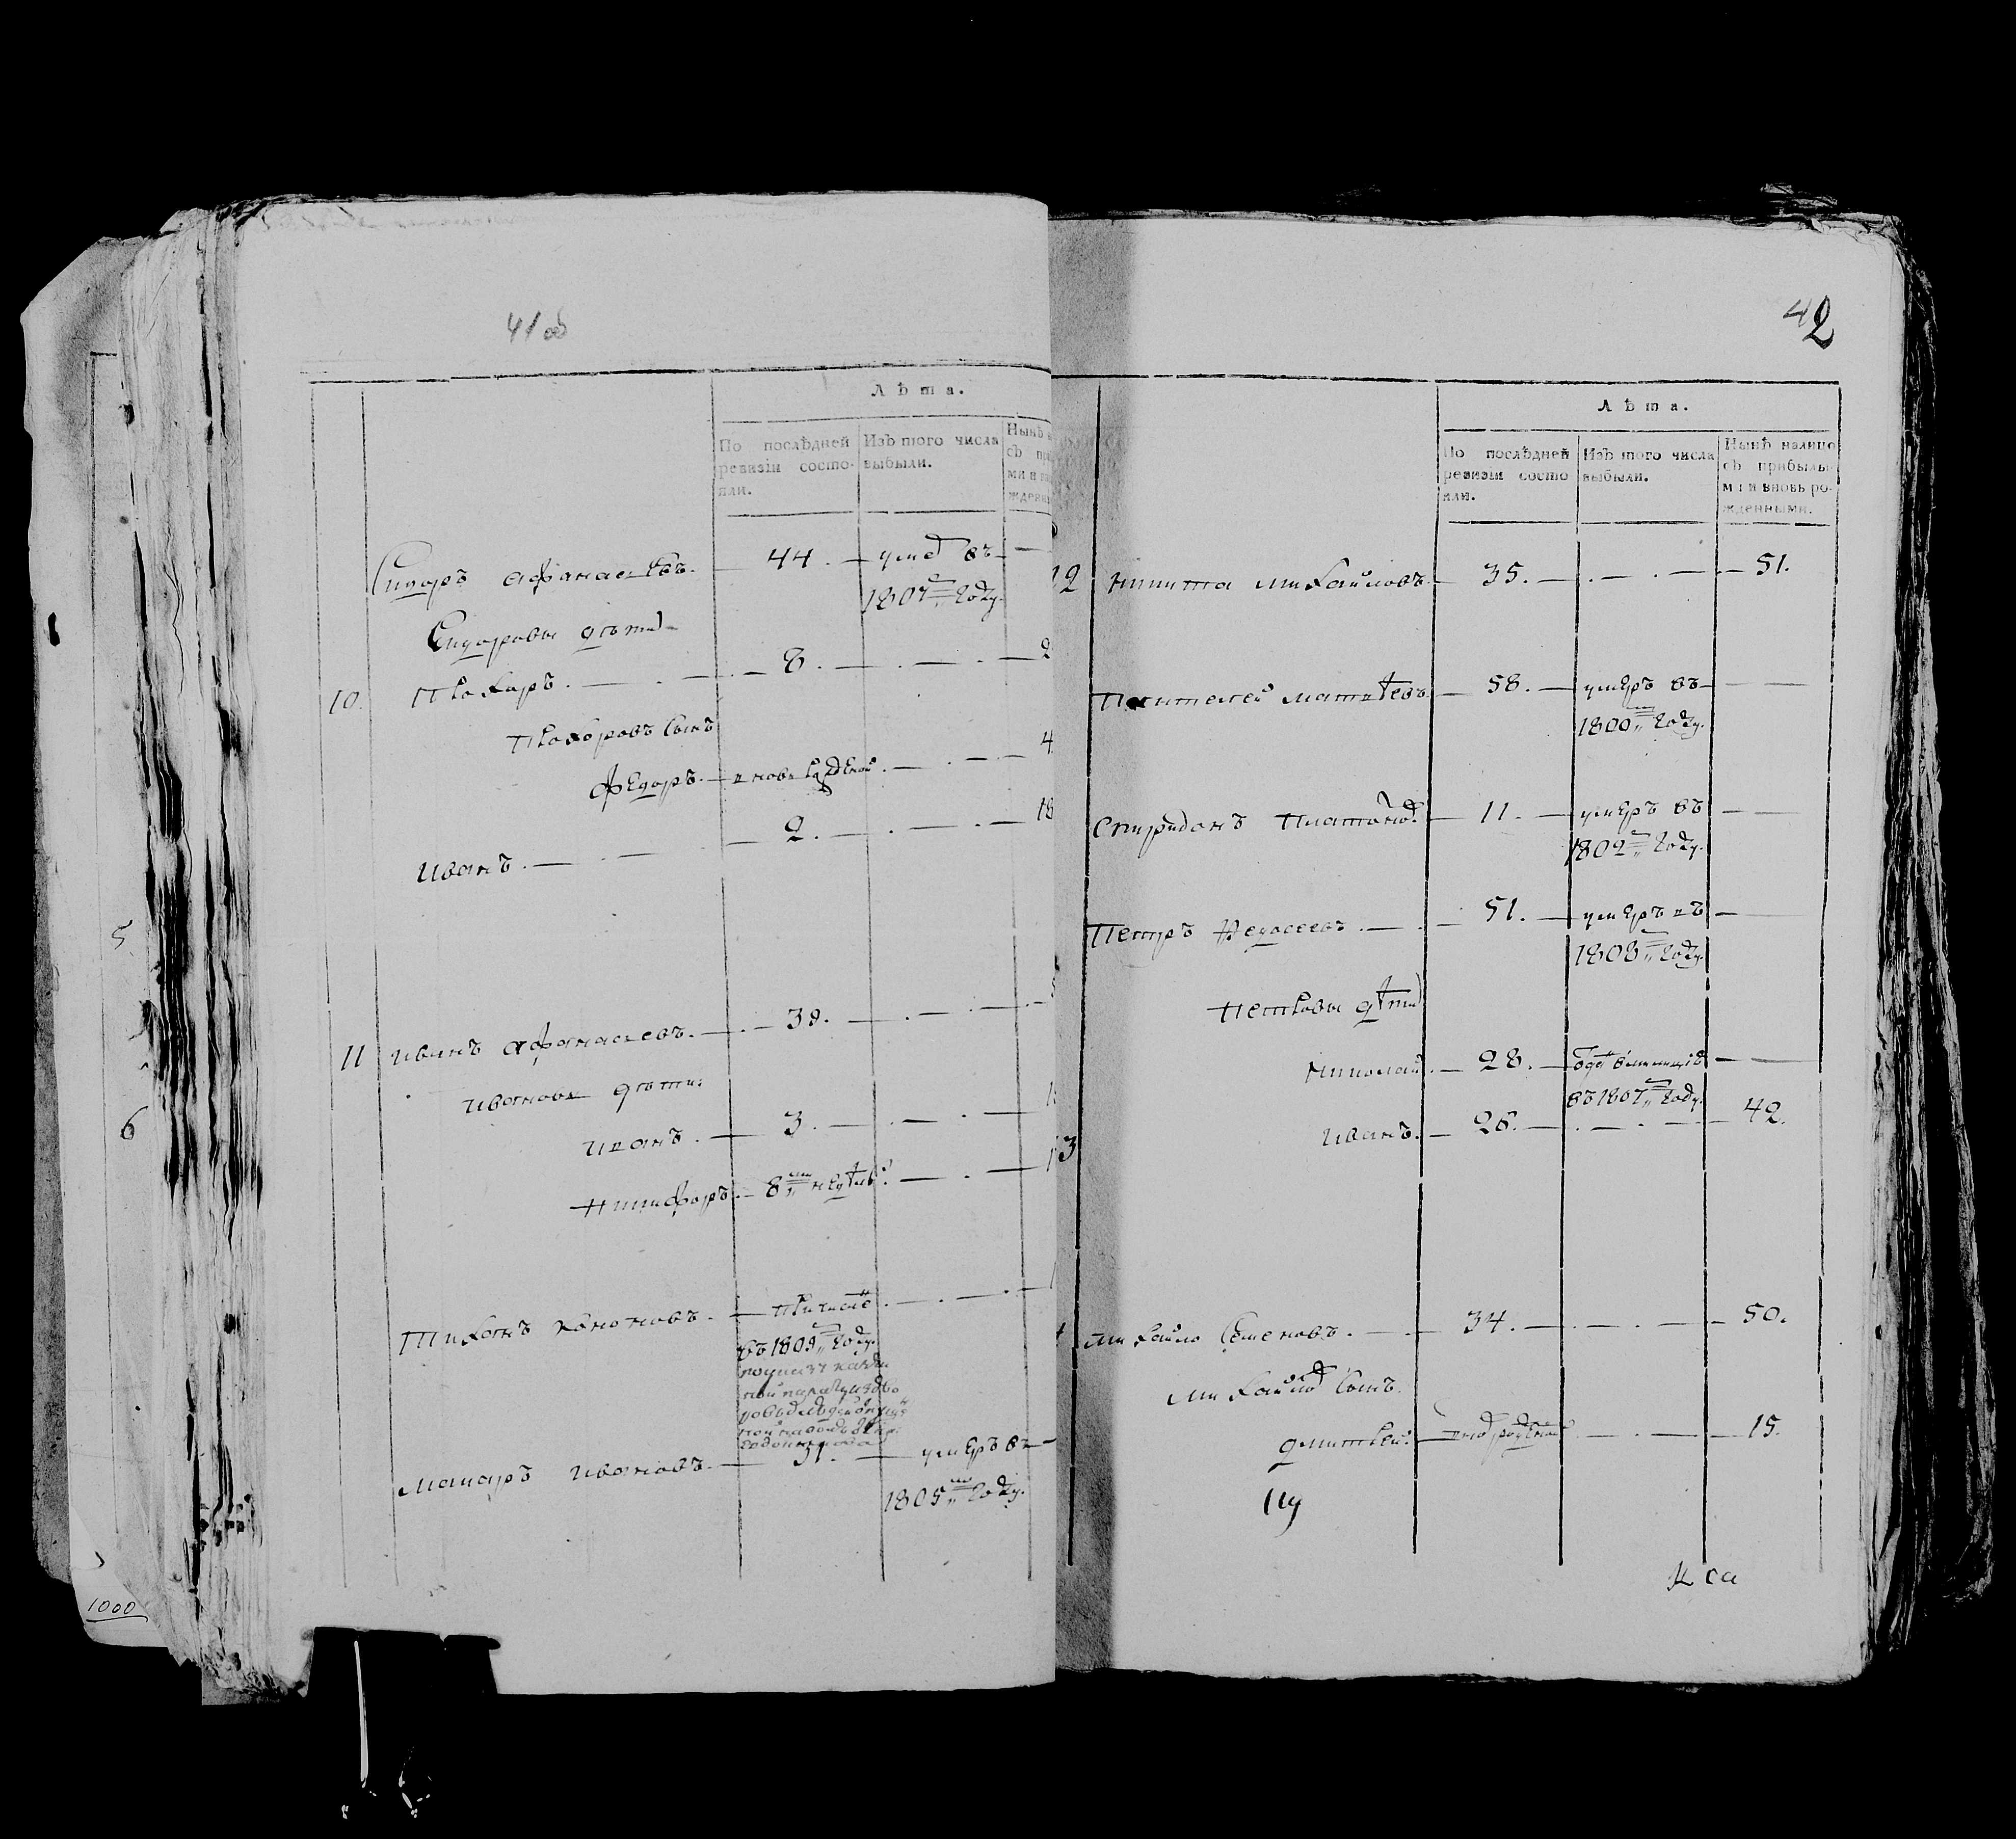 41 об
Лѣта.
По послѣдней
ревизіи состо-
яли.
Изъ того числа
выбыли.
Нынѣ
съ при
ми и вн
жденны
Сидоръ Афанасьевъ. 44. умре въ
1807м году.
Сидоровы дѣти
10. Прохоръ. 8. 2
Прохоровъ сынъ
Федоръ. вновь рожденой. 4
Иванъ. 2. 18
11 Иванъ Афанасьевъ. 38.
Ивановы дѣти:
Иванъ. 3.
Никифоръ. 8ми недѣль.
Тихонъ Кононовъ.
въ 1809м году
Макаръ Ивановъ. 31. умеръ въ
1805м году.
5
6
1000
42
Лѣта.
По послѣдней
ревизіи состо
яли.
Изъ того числа
выбыли.
Нынѣ налицо
съ прибылы-
ми и вновь ро-
жденными.
12 Никита Михайловъ 35. 51.
Пантелей Матвѣевъ 58. умеръ въ
1800м году.
Спиридонъ Платоно. 11. умеръ въ
1802м году.
Петръ Федосеевъ. 51. умеръ въ
1808м году.
Петровы дѣти
Николай. 28.
въ 1807м году.
13 Иванъ. 26. 42.
Михайло Семеновъ. 34. 50.
Михайло сынъ.
Дмитрей. 15.